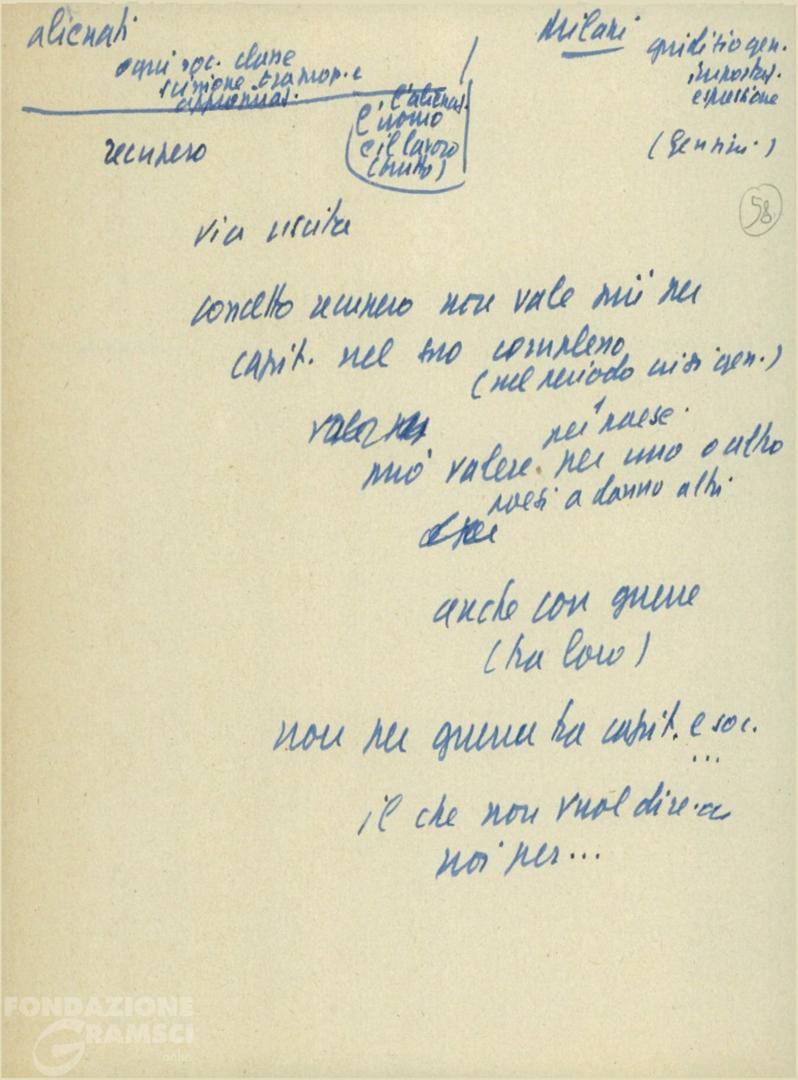 alienati
ogni soc. classe
scissione tra prop. e
recupero
l'alienaz.
l'uomo
e il lavoro
(brutto)
Milani
giudizio gen.
impostaz.
espressione
(Gemini.)
58
via uscita
concetto recupero non vale più per
capit. nel suo complesso
(nel periodo crisi gen.)
per 1 paese.
può valere per uno o altro
paesi a danno altri
anche con guerre
(tra loro)
non per guerra tra capit. e soc.
...
il che non vuol dire
poi per...
FONDAZIONE
GRAMSCI
onlus